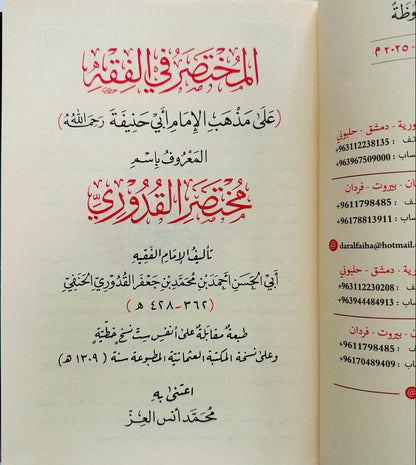 المختصر في الفقه
(على مذهب الإمام أبي حنيفة رحمه الله)
المعروف باسم
مختصر القدوري
تأليف الإمام الفقيه
أبي الحسن أحمد بن محمد بن جعفر القدوري الحنفي
(٣٦٢ - ٤٢٨ هـ)
طبعة مقابلة على أنفس ست نسخ خطية
وعلى نسخة المكتبة العثمانية المطبوعة سنة (١٣٠٩ هـ)
اعتنى به
محمد أنس العز
وظة
٢٠٢٥ م
ورية - دمشق - حلبوني
+963112238135
+963967509000
ان - بيروت - فردان
+9611798485
+96178813911
daralfaiha@hotmail.
ورية - دمشق - حلبوني
+963112230208
+963944484913
ان - بيروت - فردان
+9611798485
+96170489409